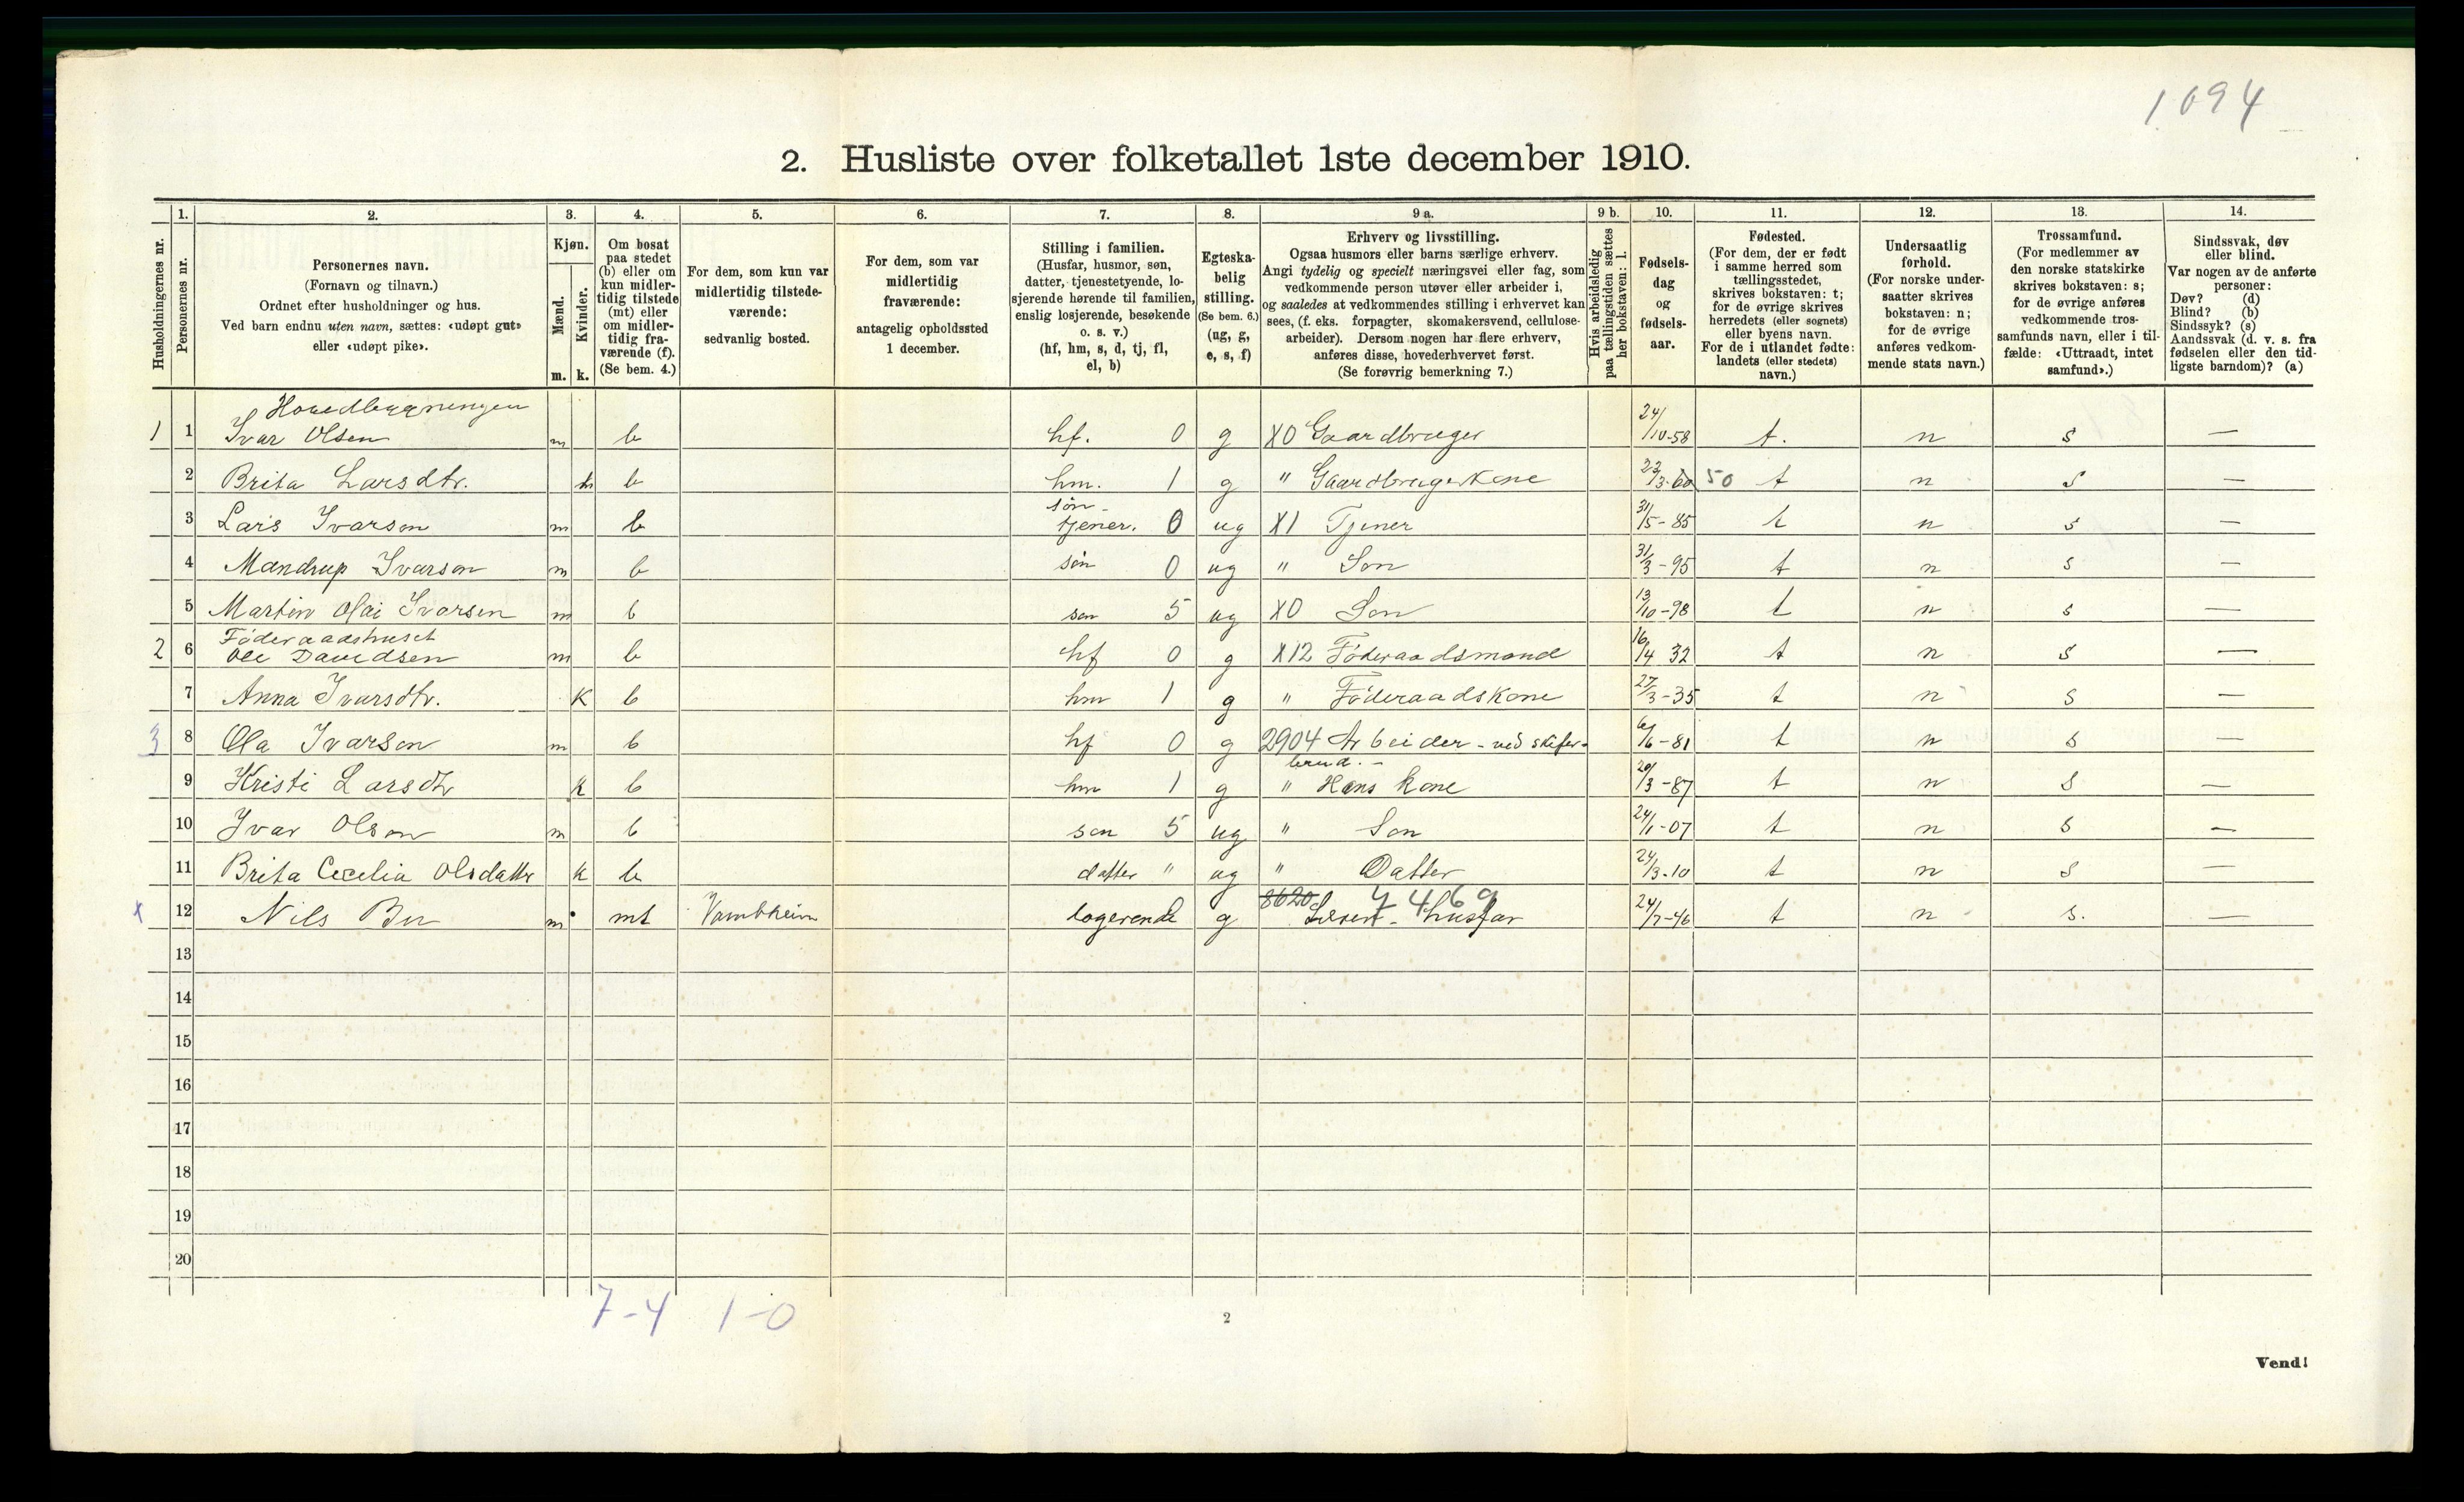 1094
2. Husliste over folketallet 1ste december 1910.
Husholdningernes nr.
1.
Personernes nr.
2.
Personernes navn.
(Fornavn og tilnavn.)
Ordnet efter husholdninger og hus.
Ved barn endnu uten navn, sættes: «udøpt gut»
eller «udøpt pike».
3.
Kjøn.
Mænd.
Kvinder.
m. k.
4.
Om bosat
paa stedet
(b) eller om
kun midler-
tidig tilstede
(mt) eller
om midler-
tidig fra-
værende (f).
(Se bem. 4.)
5.
For dem, som kun var
midlertidig tilstede-
værende:
sedvanlig bosted.
6.
For dem, som var
midlertidig
fraværende:
antagelig opholdssted
1 december.
7.
Stilling i familien.
(Husfar, husmor, søn,
datter, tjenestetyende, lo-
sjerende hørende til familien,
enslig losjerende, besøkende
o. s. v.)
(hf, hm, s, d, tj, fl,
el, b)
8.
Egteska-
belig
stilling.
(Se bem. 6.)
(ug, g,
e, s, f)
9 a.
Erhverv og livsstilling.
Ogsaa husmors eller barns særlige erhverv.
Angi tydelig og specielt næringsvei eller fag, som
vedkommende person utøver eller arbeider i,
og saaledes at vedkommendes stilling i erhvervet kan
sees, (f. eks. forpagter, skomakersvend, cellulose-
arbeider). Dersom nogen har flere erhverv,
anføres disse, hovederhvervet først.
(Se forøvrig bemerkning 7.)
9 b.
Hvis arbeidsledig
paa tællingstiden sættes
her bokstaven: l.
10.
Fødsels-
dag
og
fødsels-
aar.
11.
Fødested.
(For dem, der er født
i samme herred som
tællingsstedet,
skrives bokstaven: t;
for de øvrige skrives
herredets (eller sognets)
eller byens navn.
For de i utlandet fødte:
landets (eller stedets)
navn.)
12.
Undersaatlig
forhold.
(For norske under-
saatter skrives
bokstaven: n;
for de øvrige
anføres vedkom-
mende stats navn.)
13.
Trossamfund.
(For medlemmer av
den norske statskirke
skrives bokstaven: s;
for de øvrige anføres
vedkommende tros-
samfunds navn, eller i til-
fælde: «Uttraadt, intet
samfund».)
14.
Sindssvak, døv
eller blind.
Var nogen av de anførte
personer:
Døv? (d)
Blind? (b)
Sindssyk? (s)
Aandssvak (d. v. s. fra
fødselen eller den tid-
ligste barndom)? (a)
Hovedbygningen
1 1 Ivar Olsen m b hf. 0 g X0 Gaardbruger 24/10-58 t. n s —
2 Brita Larsdtr. k b hm. 1 g " Gaardbrugerkone 23/3-60 50 t n s —
søn -
3 Lars Ivarson m b tjener. 0 ug X1 Tjener 31/5-85 t n s —
4 Mandrup Ivarson m b søn 0 ug " Son 31/3-95 t n s —
5 Martin Olai Ivarsen m b søn 5 ug X0 Son 13/10-98 t n s —
Föderaadshuset
2 6 Ole Davidsen m b hf 0 g X12 Föderaadsmand 16/14 32 t n s —
7 Anna Ivarsdtr. K b hm 1 g " Föderaadskone 27/3-35 t n s —
3 8 Ola Ivarson m b hf 0 g 2904 Arbeider - ved skifer- 6/6-81 t n s —
brud. -
9 Kristi Larsdtr k b hm 1 g " Hans kone 20/3-87 t n s —
10 Ivar Olson m b søn 5 ug " Son 24/1-07 t n s —
11 Brita Cecelia Olsdattr k b datter " ug " Datter 24/3-10 t n s —
8620 7469
x 12 Nils Bu m mt logerende g husfar 24/7-46 t n s. —
13
14
15
16
17
18
19
20
7-4 1-0
2
Vend!